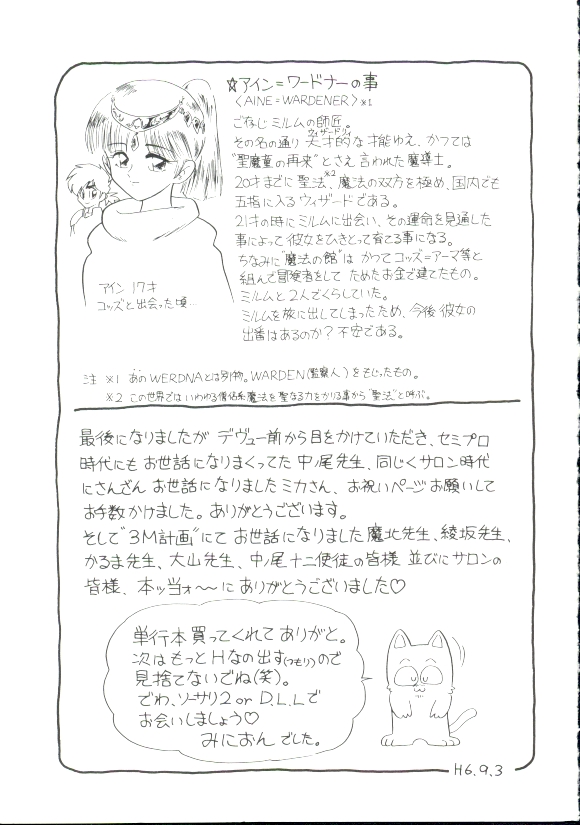 ☆アイン=ワードナーの事
〈AINE=WARDENER〉※1
ごぞんじミルムの師匠。
その名の通り 天才的な才能ゆえ、かつては
"聖魔童の再来"とさえ言われた魔導士。
20才までに聖法※2、魔法の双方を極め、国内でも
五指に入るウィザードである。
21才の時にミルムに出会い、その運命を見通した
事によって彼女をひきとって育てる事になる。
ちなみに"魔法の館"は かつてコッズ=アーマ等と
組んで冒険者をして ためたお金で建てたもの。
ミルムと2人でくらしていた。
ミルムを旅に出してしまったため、今後 彼女の
出番はあるのか?不安である。
アイン 17才
コッズと出会った頃…
注 ※1 あのWERDNAとは別物。WARDEN(監察人)をもじったもの。
※2 この世界では いわゆる僧侶系魔法を聖なる力をかりる事から"聖法"と呼ぶ。
最後になりましたが デヴュー前から目をかけていただき、セミプロ
時代にも お世話になりまくってた 中ノ尾先生、同じくサロン時代
にさんざん お世話になりましたミカさん、お祝いページお願いして
お手数かけました。ありがとうございます。
そして"3M計画"にて お世話になりました 魔北先生、綾坂先生、
かるま先生、大山先生、中ノ尾十二使徒の皆様 並びにサロンの
皆様、本ッ当ォ〜〜に ありがとうございました♡
単行本買ってくれて ありがと。
次はもっとHなの出す(つもり)ので
見捨てないでね(笑)。
でわ、ソーサリ2 or D.L.Lで
お会いしましょう♡
みにおん でした。
H6.9.3